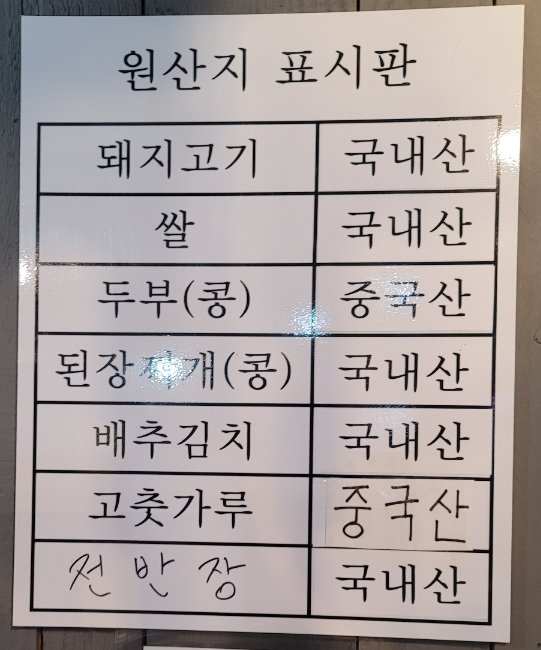 원산지 표시판
돼지고기 국내산
쌀 국내산
두부(콩) 중국산
된장찌개(콩) 국내산
배추김치 국내산
고춧가루 중국산
전반장 국내산